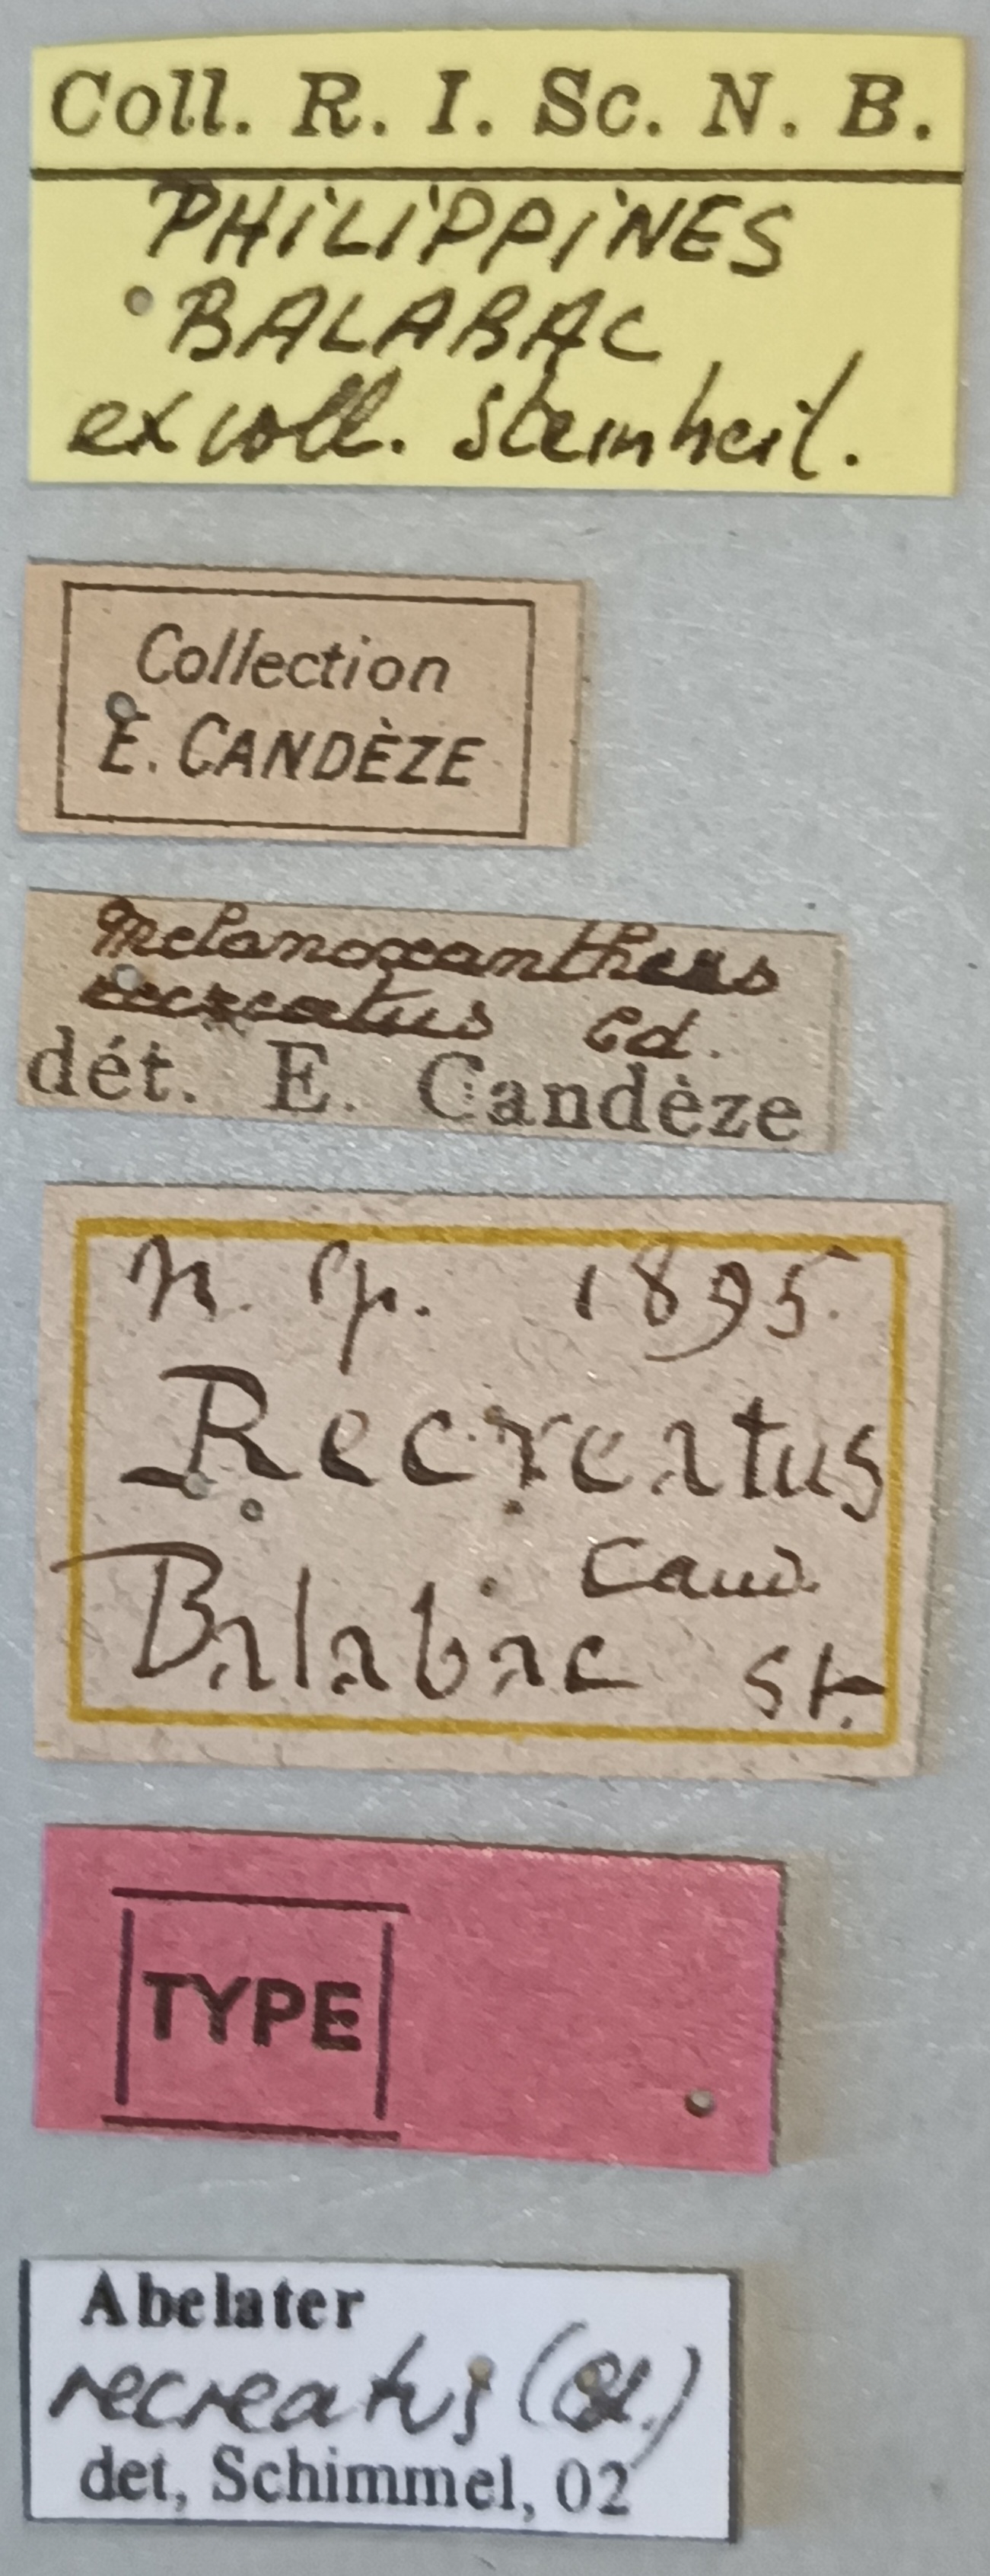 Coll. R. I. Sc. N. B.
PHILIPPINES
BALABAC
ex coll. Steinheil.
Collection
E. CANDÈZE
Melanoxanthus
recreatus Cd.
dét. E. Candèze
n. sp. 1895.
Recreatus
Cand.
Balabac St.
TYPE
Abelater
recreatus
det, Schimmel, 02